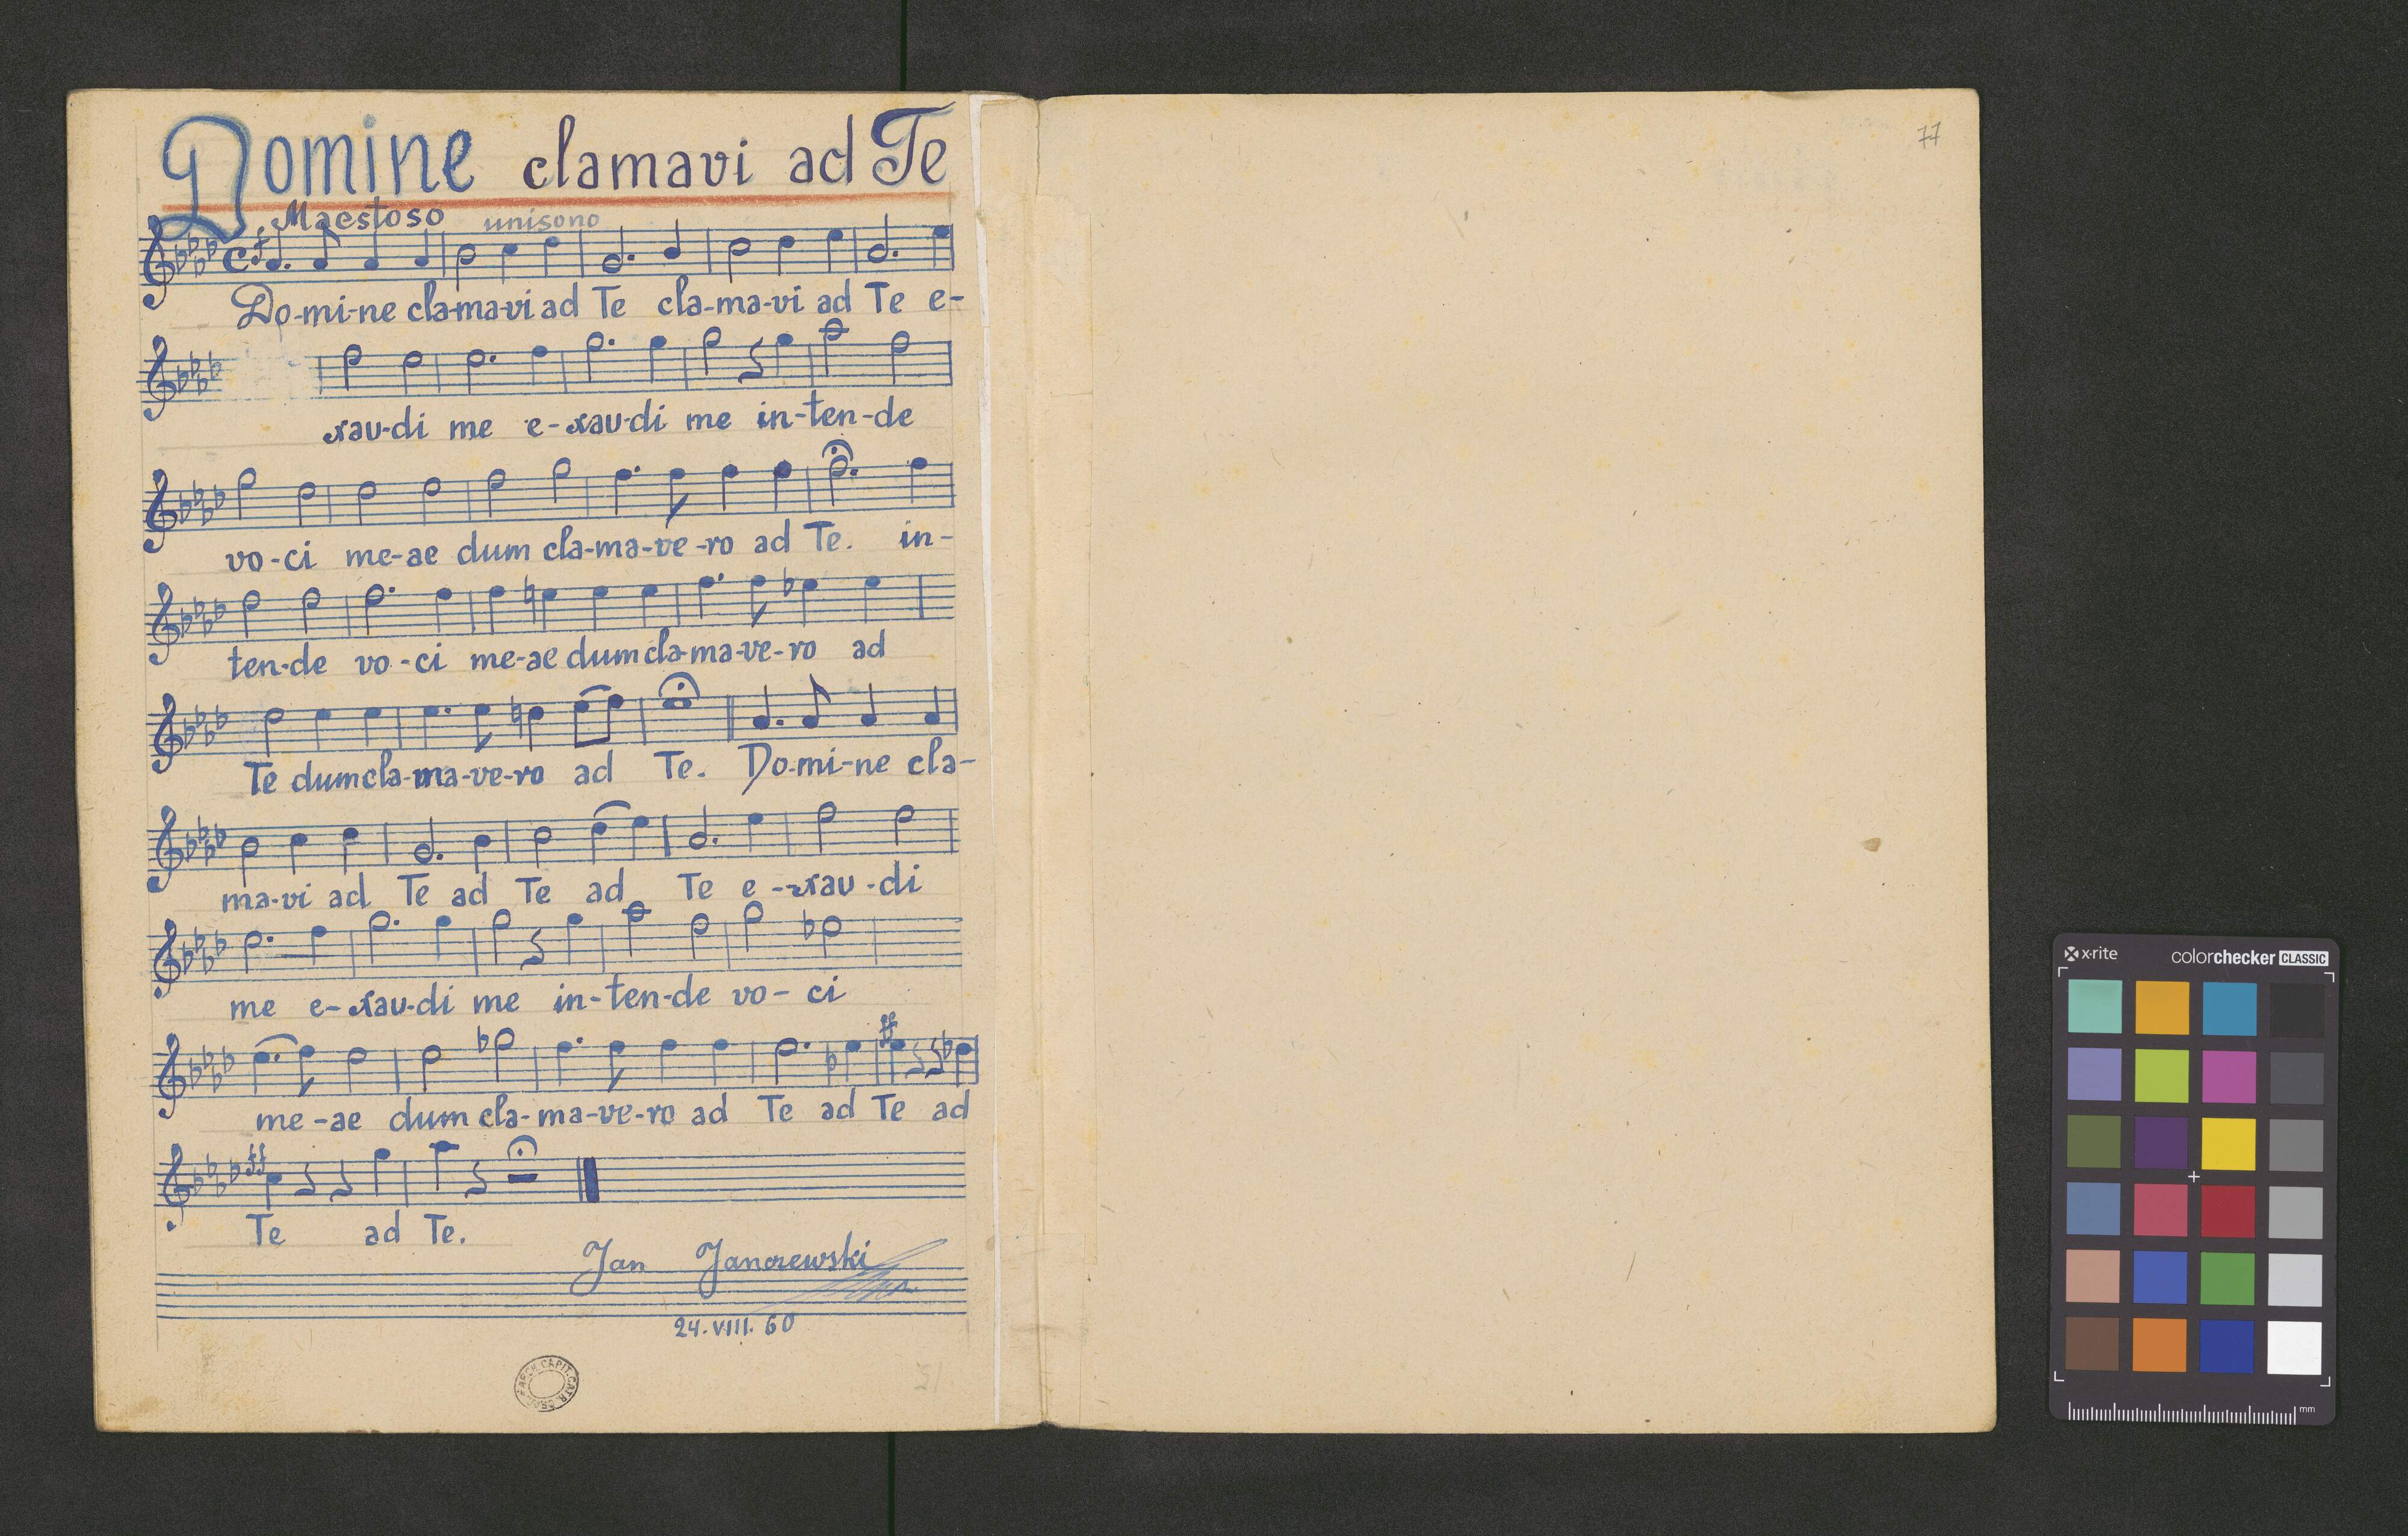 Domine clamavi ad Te
Maestoso unisono
Do-mi-ne cla-ma-vi ad Te cla-ma-vi ad Te e-
xau-di me e-xau-di me in-ten-de
vo-ci me-ae dum cla-ma-ve-ro ad Te. in-
ten-de vo-ci me-ae dum cla-ma-ve-ro ad
Te dum cla-ma-ve-ro ad Te. Do-mi-ne cla-
ma-vi ad Te ad Te ad Te e-xau-di
me e-xau-di me in-ten-de vo-ci
me-ae dum cla-ma-ve-ro ad Te ad Te ad
Te ad Te.
Jan Janczewski
24.VIII.60
77
x-rite colorchecker CLASSIC
mm